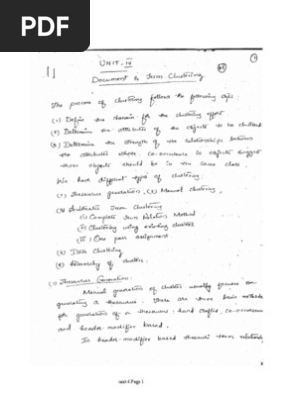 PDF
UNIT-IV
Document & Term Clustering
The process of clustering follows the following steps:
(1) Define the domain for the clustering effort
(2) Determine the attributes of the objects to be clustered
(3) Determine the strength of the relationships between
the attributes whose co-occurrence in objects suggest
those objects should be in the same class.
We have different types of clustering:
(1) Thesaurus generation, (2) Manual clustering,
(3) Automatic Term Clustering
(i) Complete Term Relation Method
(ii) Clustering using existing clusters
(iii) One pass assignment.
(4) Item Clustering
(5) Hierarchy of clusters.
(1) Thesaurus Generation:
Manual generation of clusters usually focuses on
generating a thesaurus. There are three basic methods
for generation of a thesaurus: hand crafted, co-occurrence
and header-modifier based.
In header-modifier based thesauri term relationships
unit 4 Page 1